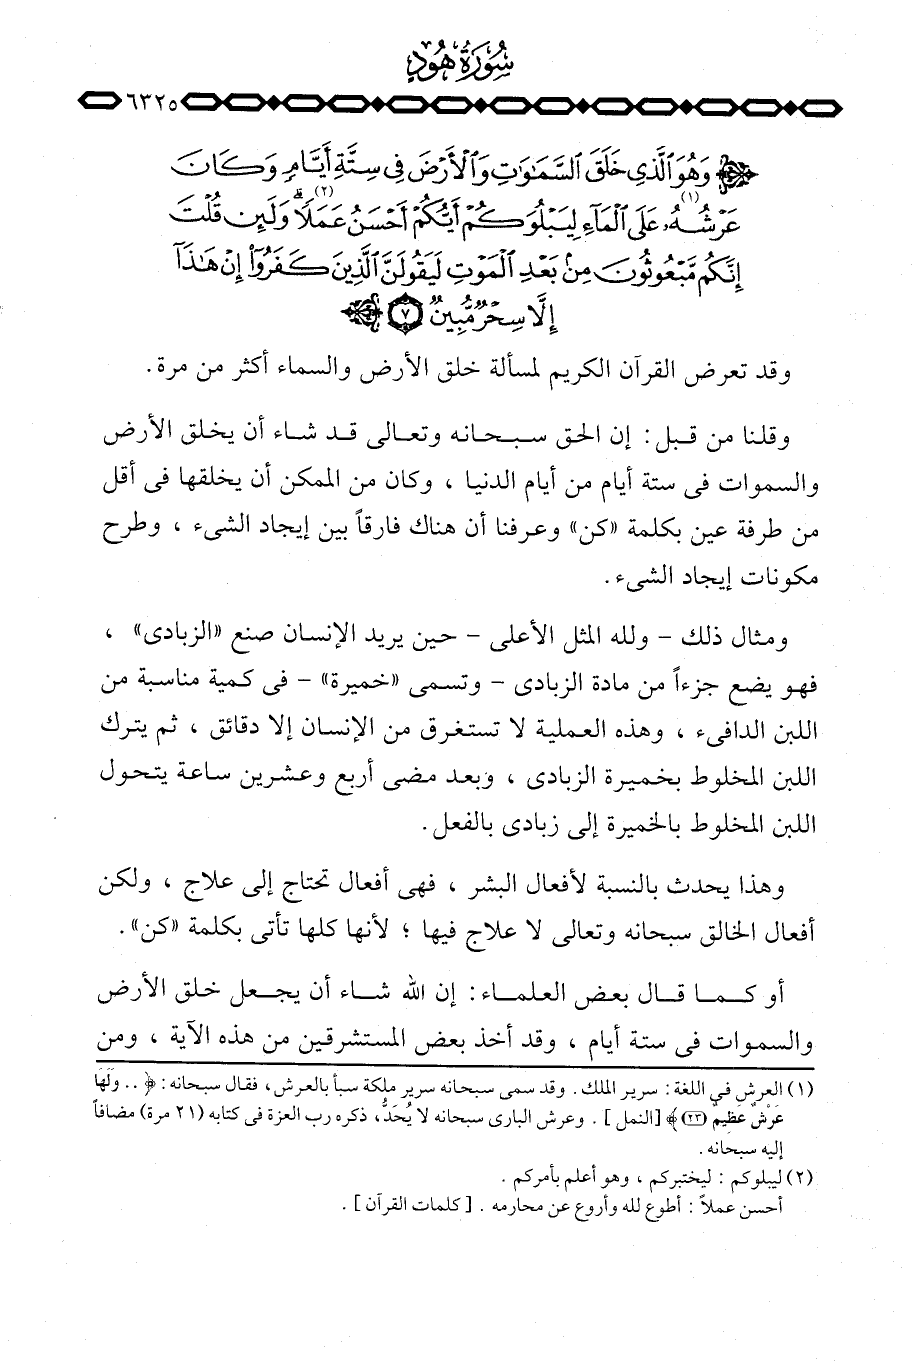 سُورَةُ هُودٍ
٦٣٢٥
وَهُوَ ٱلَّذِي خَلَقَ ٱلسَّمَٰوَٰتِ وَٱلْأَرْضَ فِي سِتَّةِ أَيَّامٍ وَكَانَ
عَرْشُهُۥ (١) عَلَى ٱلْمَآءِ لِيَبْلُوَكُمْ أَيُّكُمْ أَحْسَنُ عَمَلًا (٢) ۗ وَلَئِن قُلْتَ
إِنَّكُم مَّبْعُوثُونَ مِنۢ بَعْدِ ٱلْمَوْتِ لَيَقُولَنَّ ٱلَّذِينَ كَفَرُوٓا۟ إِنْ هَٰذَآ
إِلَّا سِحْرٌ مُّبِينٌ ٧
وقد تعرض القرآن الكريم لمسألة خلق الأرض والسماء أكثر من مرة .
وقلنا من قبل : إن الحق سبحانه وتعالى قد شاء أن يخلق الأرض
والسموات فى ستة أيام من أيام الدنيا ، وكان من الممكن أن يخلقها فى أقل
من طرفة عين بكلمة «كن» وعرفنا أن هناك فارقاً بين إيجاد الشىء ، وطرح
مكونات إيجاد الشىء .
ومثال ذلك - ولله المثل الأعلى - حين يريد الإنسان صنع «الزبادى» ،
فهو يضع جزءاً من مادة الزبادى - وتسمى «خميرة» - فى كمية مناسبة من
اللبن الدافىء ، وهذه العملية لا تستغرق من الإنسان إلا دقائق ، ثم يترك
اللبن المخلوط بخميرة الزبادى ، وبعد مضى أربع وعشرين ساعة يتحول
اللبن المخلوط بالخميرة إلى زبادى بالفعل .
وهذا يحدث بالنسبة لأفعال البشر ، فهى أفعال تحتاج إلى علاج ، ولكن
أفعال الخالق سبحانه وتعالى لا علاج فيها ؛ لأنها كلها تأتى بكلمة «كن» .
أو كما قال بعض العلماء : إن الله شاء أن يجعل خلق الأرض
والسموات فى ستة أيام ، وقد أخذ بعض المستشرقين من هذه الآية ، ومن
(١) العرش في اللغة : سرير الملك . وقد سمى سبحانه سرير ملكة سبأ بالعرش ، فقال سبحانه : ﴿ .. وَلَهَا
عَرْشٌ عَظِيمٌ (٢٣) ﴾ [النمل] . وعرش البارى سبحانه لا يُحَدُّ ، ذكره رب العزة فى كتابه (٢١ مرة) مضافاً
إليه سبحانه .
(٢) ليبلوكم : ليختبركم ، وهو أعلم بأمركم .
أحسن عملاً : أطوع لله وأروع عن محارمه . [ كلمات القرآن ] .